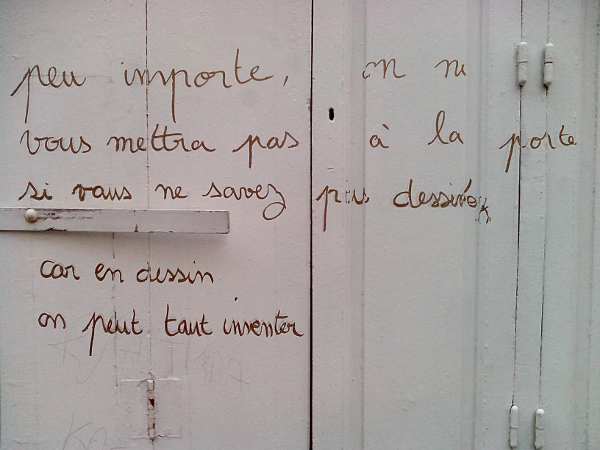 peu importe, on ne
vous mettra pas à la porte
si vous ne savez pas dessiner
car en dessin
on peut tout inventer